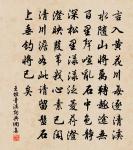 言入黃花川每逐清溪
水隨山將萬轉趣途無
百里聲喧亂石中色靜
深松裏漾漾泛菱荇澄
澄映葭葦我心素已閑
清川澹如此請留盤石
上垂釣將已矣
王維青溪